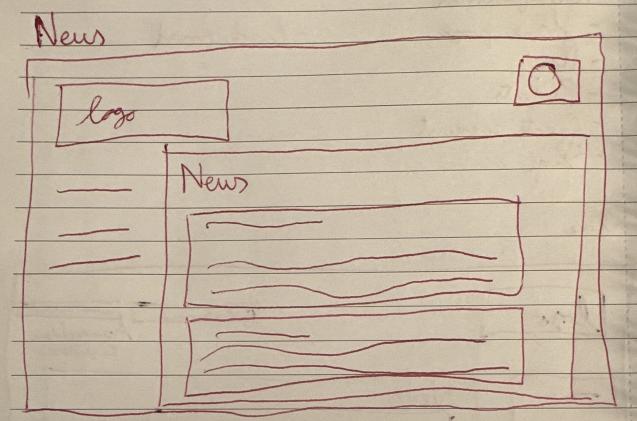 News
logo
News